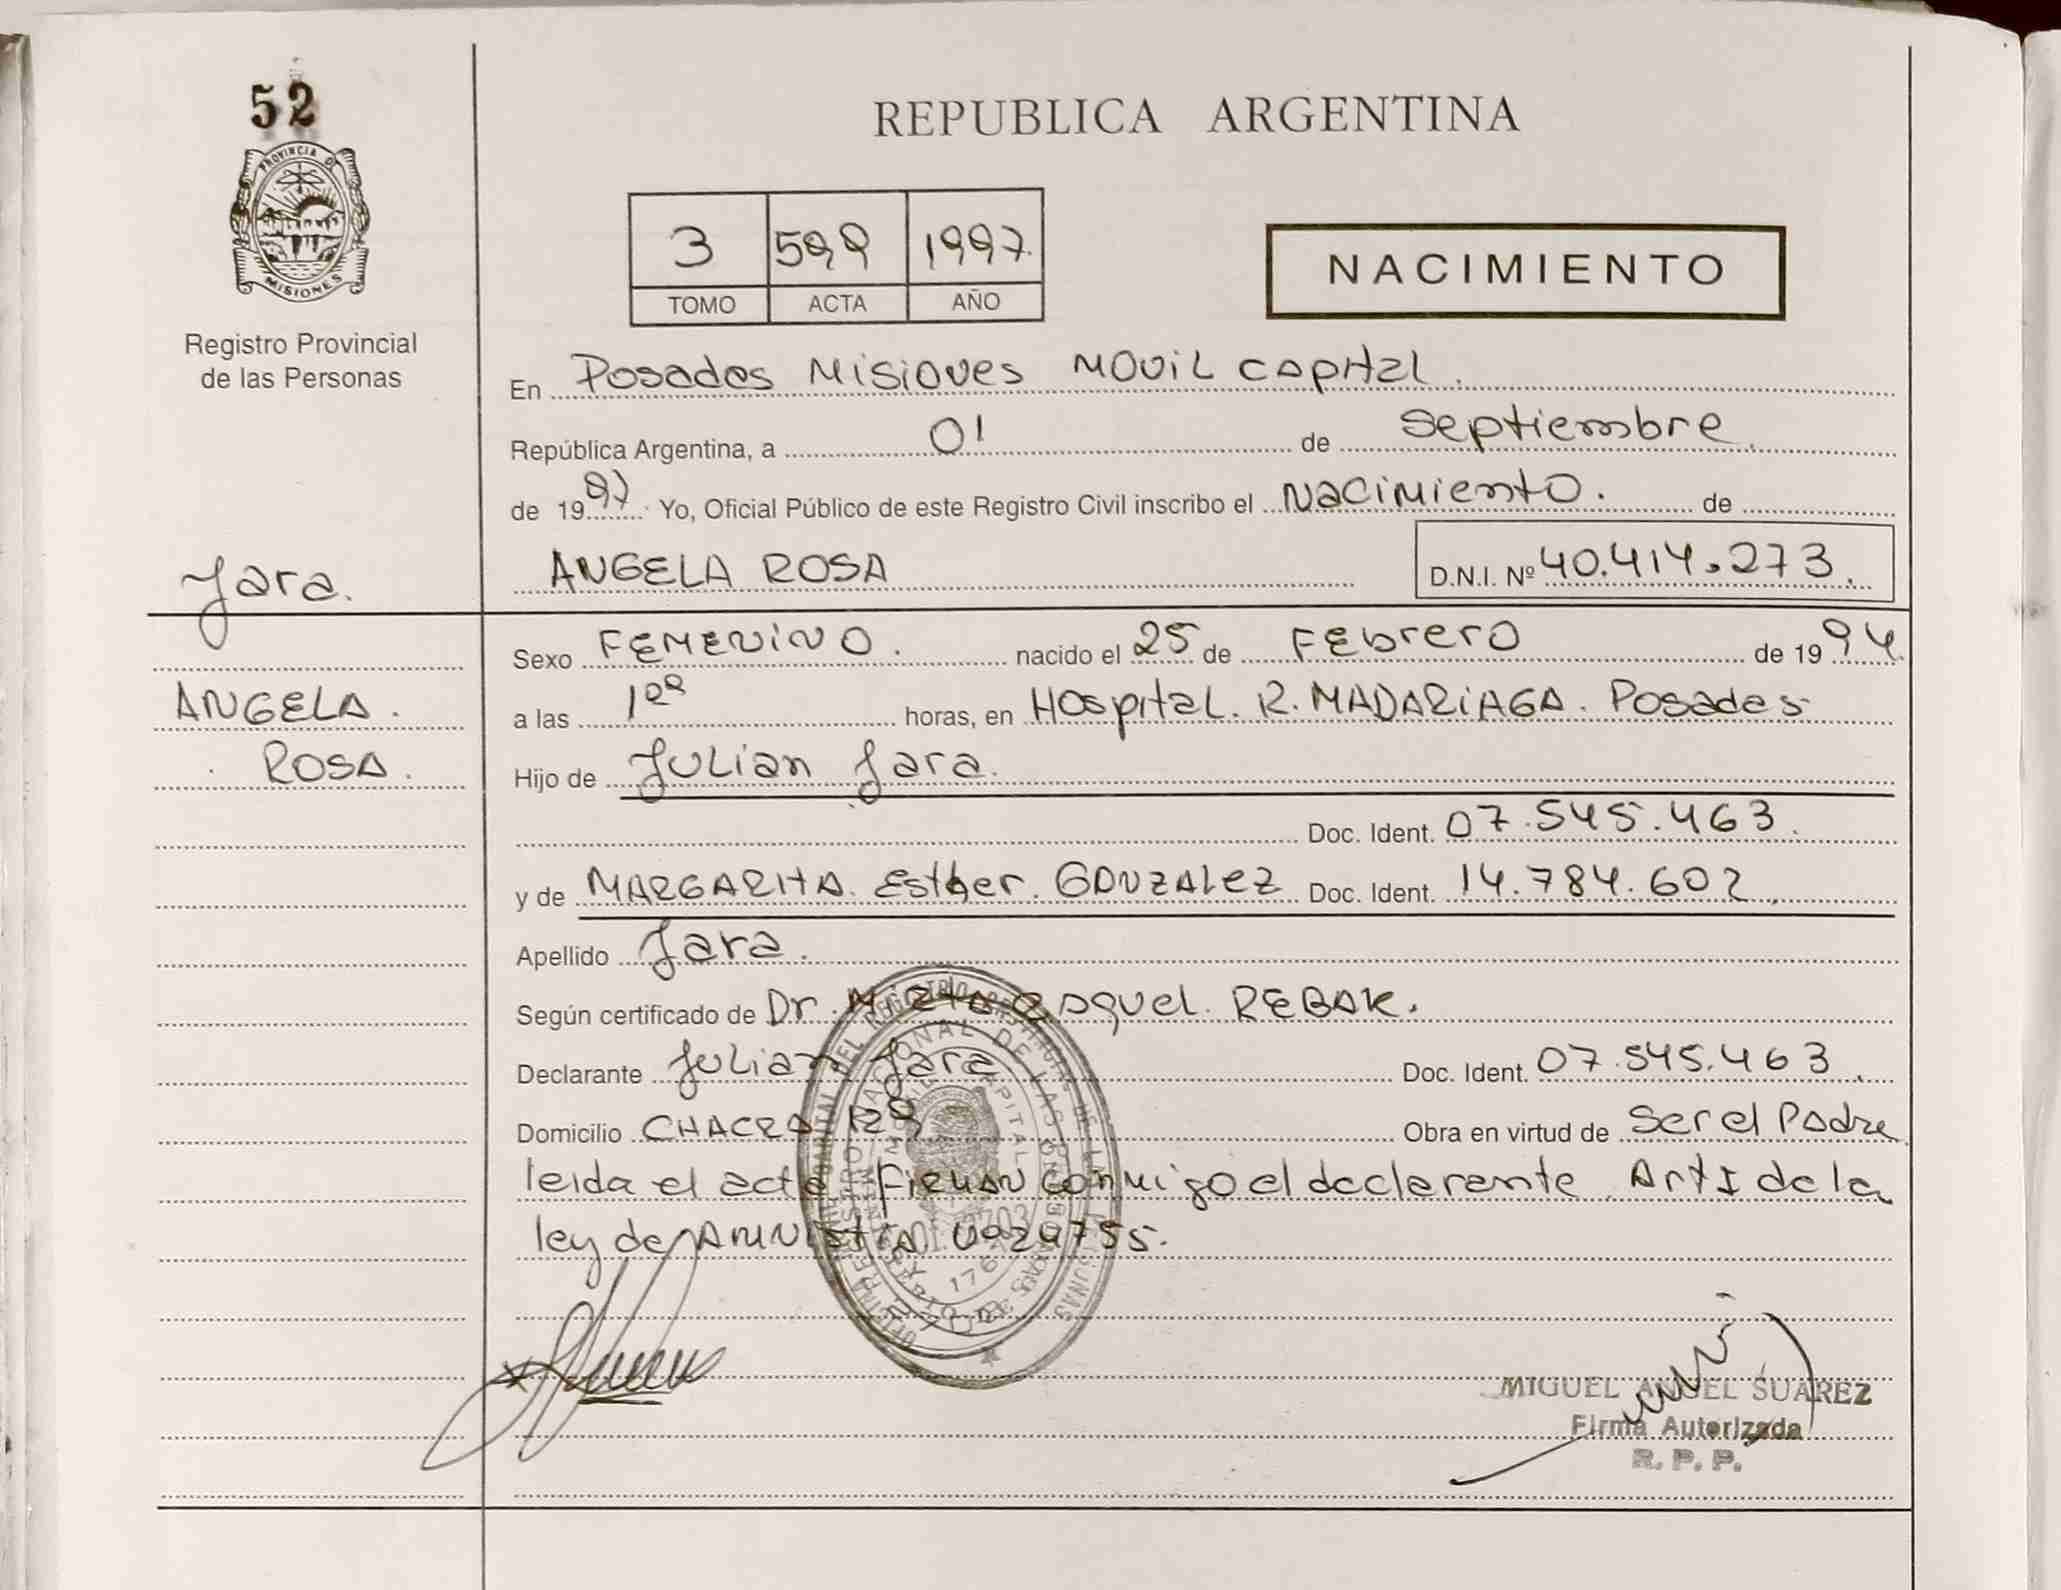 52
PROVINCIA DE
MISIONES
Registro Provincial
de las Personas
REPUBLICA ARGENTINA
3 599 1997
TOMO ACTA AÑO
NACIMIENTO
En Posadas Misiones Movil Capital.
República Argentina, a 01 de Septiembre.
de 1997 Yo, Oficial Público de este Registro Civil inscribo el Nacimiento. de
ANGELA ROSA D.N.I. Nº 40.414.273.
Jara.
ANGELA.
ROSA.
Sexo FEMENINO. nacido el 25 de Febrero de 1994.
a las horas, en Hospital. R. MADARIAGA. Posadas
Hijo de Julian Jara.
Doc. Ident. 07.545.463.
y de MARGARITA. Esther. GONZALEZ Doc. Ident. 14.784.602.
Apellido Jara.
Según certificado de Dr. Mirta Raquel. REBAK.
Declarante Julian Jara Doc. Ident. 07.545.463.
Domicilio CHACRA Obra en virtud de Ser el Padre
leida el acta Firman conmigo el declarante. Art I de la
ley de Amnistia 24755.
MIGUEL ANGEL SUAREZ
Firma Autorizada
R. P. P.